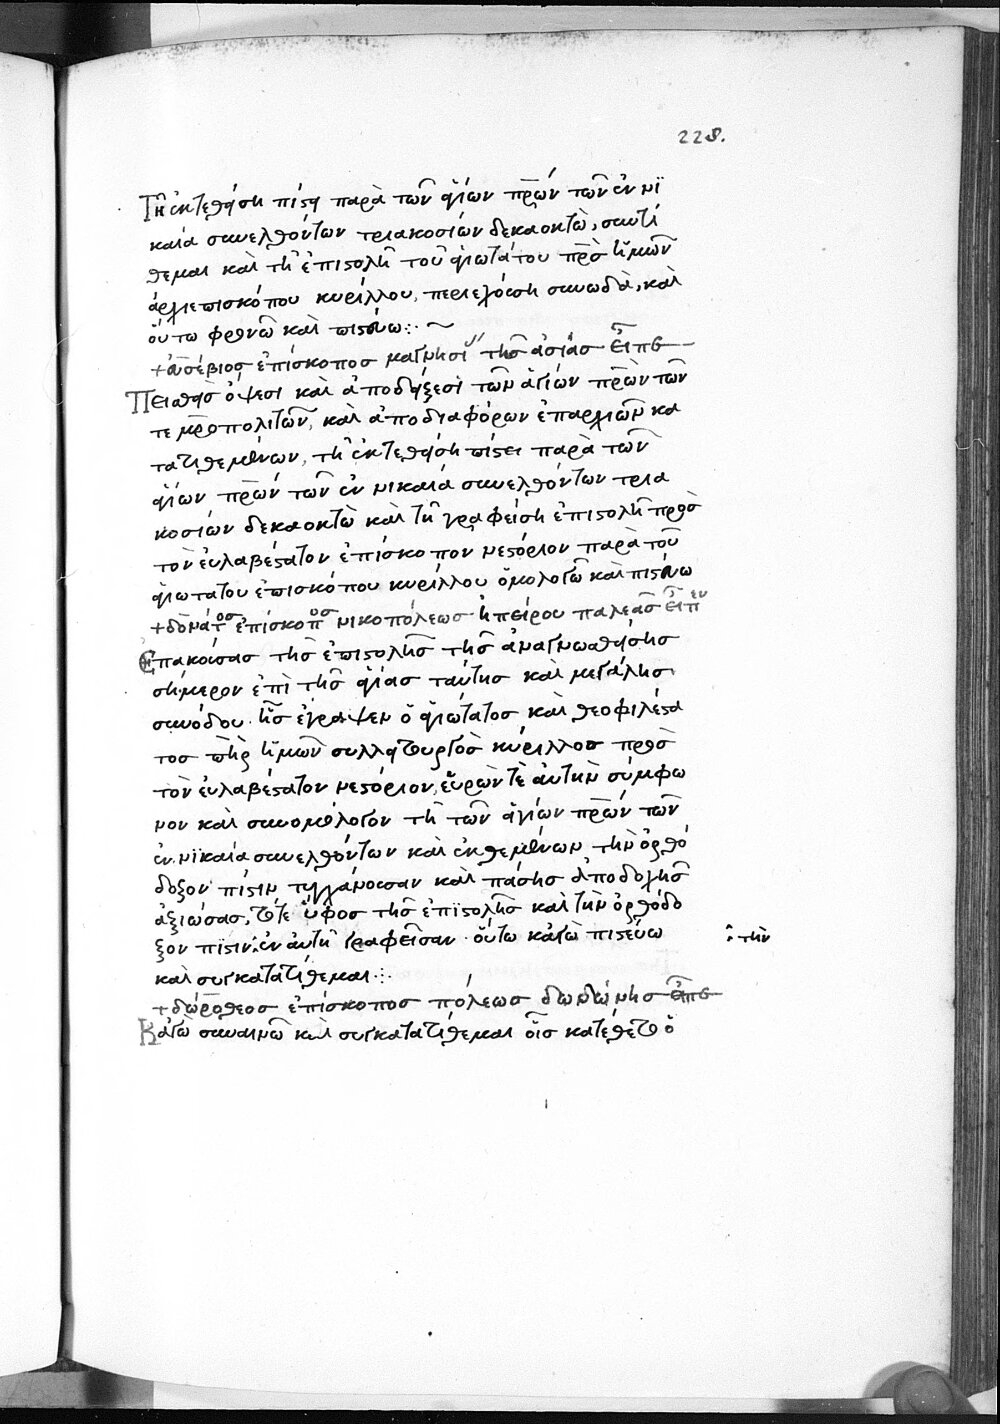 228.
Τῆ ἐκτεθείση πίστει παρὰ τῶν ἁγίων π̅ρ̅ων τῶν ἐν νι
καία συνελθόντων τριακοσίων δεκαοκτὼ, συντί
θεμαι καὶ τῆ ἐπιστολῆ τοῦ ἁγιωτάτου π̅ρ̅ς ἡμῶν
ἀρχιεπισκόπου κυρίλλου, περιεχούση συνωδὰ, καὶ
οὕτω φρονῶ καὶ πιστεύω : ~
+ εὐσέβιος ἐπίσκοπος μαγνησί τῆς ἀσίας εἶπε
Πεισθεὶς ὄψεσι καὶ ἀποδείξεσι τῶν ἁγίων π̅ρ̅ων τῶν
τε μ̅ρ̅οπολιτῶν, καὶ ἀπο διαφόρων ἐπαρχιῶν κα
τατιθεμένων, τῆ ἐκτεθείση πίστει παρὰ τῶν
ἁγίων π̅ρ̅ων τῶν ἐν νικαία συνελθόντων τρια
κοσίων δεκαοκτὼ καὶ τῆ γραφείση ἐπιστολῆ πρὸς
τὸν εὐλαβέστατον ἐπίσκοπον νεστόριον παρὰ τοῦ
ἁγιωτατου ἐπισκόπου κυρίλλου ὁμολογῶ καὶ πιστεύω
+ δονάτος ἐπίσκοπος νικοπόλεως ἠπείρου παλεᾶς εἶπεν
Ἐπακούσας τῆς ἐπιστολῆς τῆς ἀναγνωσθείσης
σήμερον ἐπὶ τῆς ἁγίας ταύτης καὶ μεγάλης
συνόδου. ἧς ἔγραψεν ὁ ἁγιώτατος καὶ θεοφιλέστα
τος π̅η̅ρ ἡμῶν συλλειτουργὸς κύριλλος πρὸς
τὸν εὐλαβέστατον νεστόριον, εὑρών τὲ αὐτὴν σύμφω
νον καὶ συνομόλογον τῆ τῶν ἁγίων π̅ρ̅ων τῶν
ἐν νικαία συνελθόντων καὶ ἐκθεμένων τὴν ὀρθό
δοξον πίστιν τυγχάνουσαν καὶ πάσης ἀποδοχῆς
ἀξιώσας, τό τε ὕφος τῆς ἐπιστολῆς καὶ τὴν ὀρθόδο
ξον πίστιν ∴ ἐν αὐτῆ γραφεῖσαν. οὕτω κἀγὼ πιστεύω
∴ τὴν
καὶ συγκατατίθεμαι :
+ δωρόθεος ἐπίσκοπος πόλεως δωδώνης εἶπε
Κἀγὼ συναινῶ καὶ συγκατατίθεμαι οἷς κατέθετο ὁ